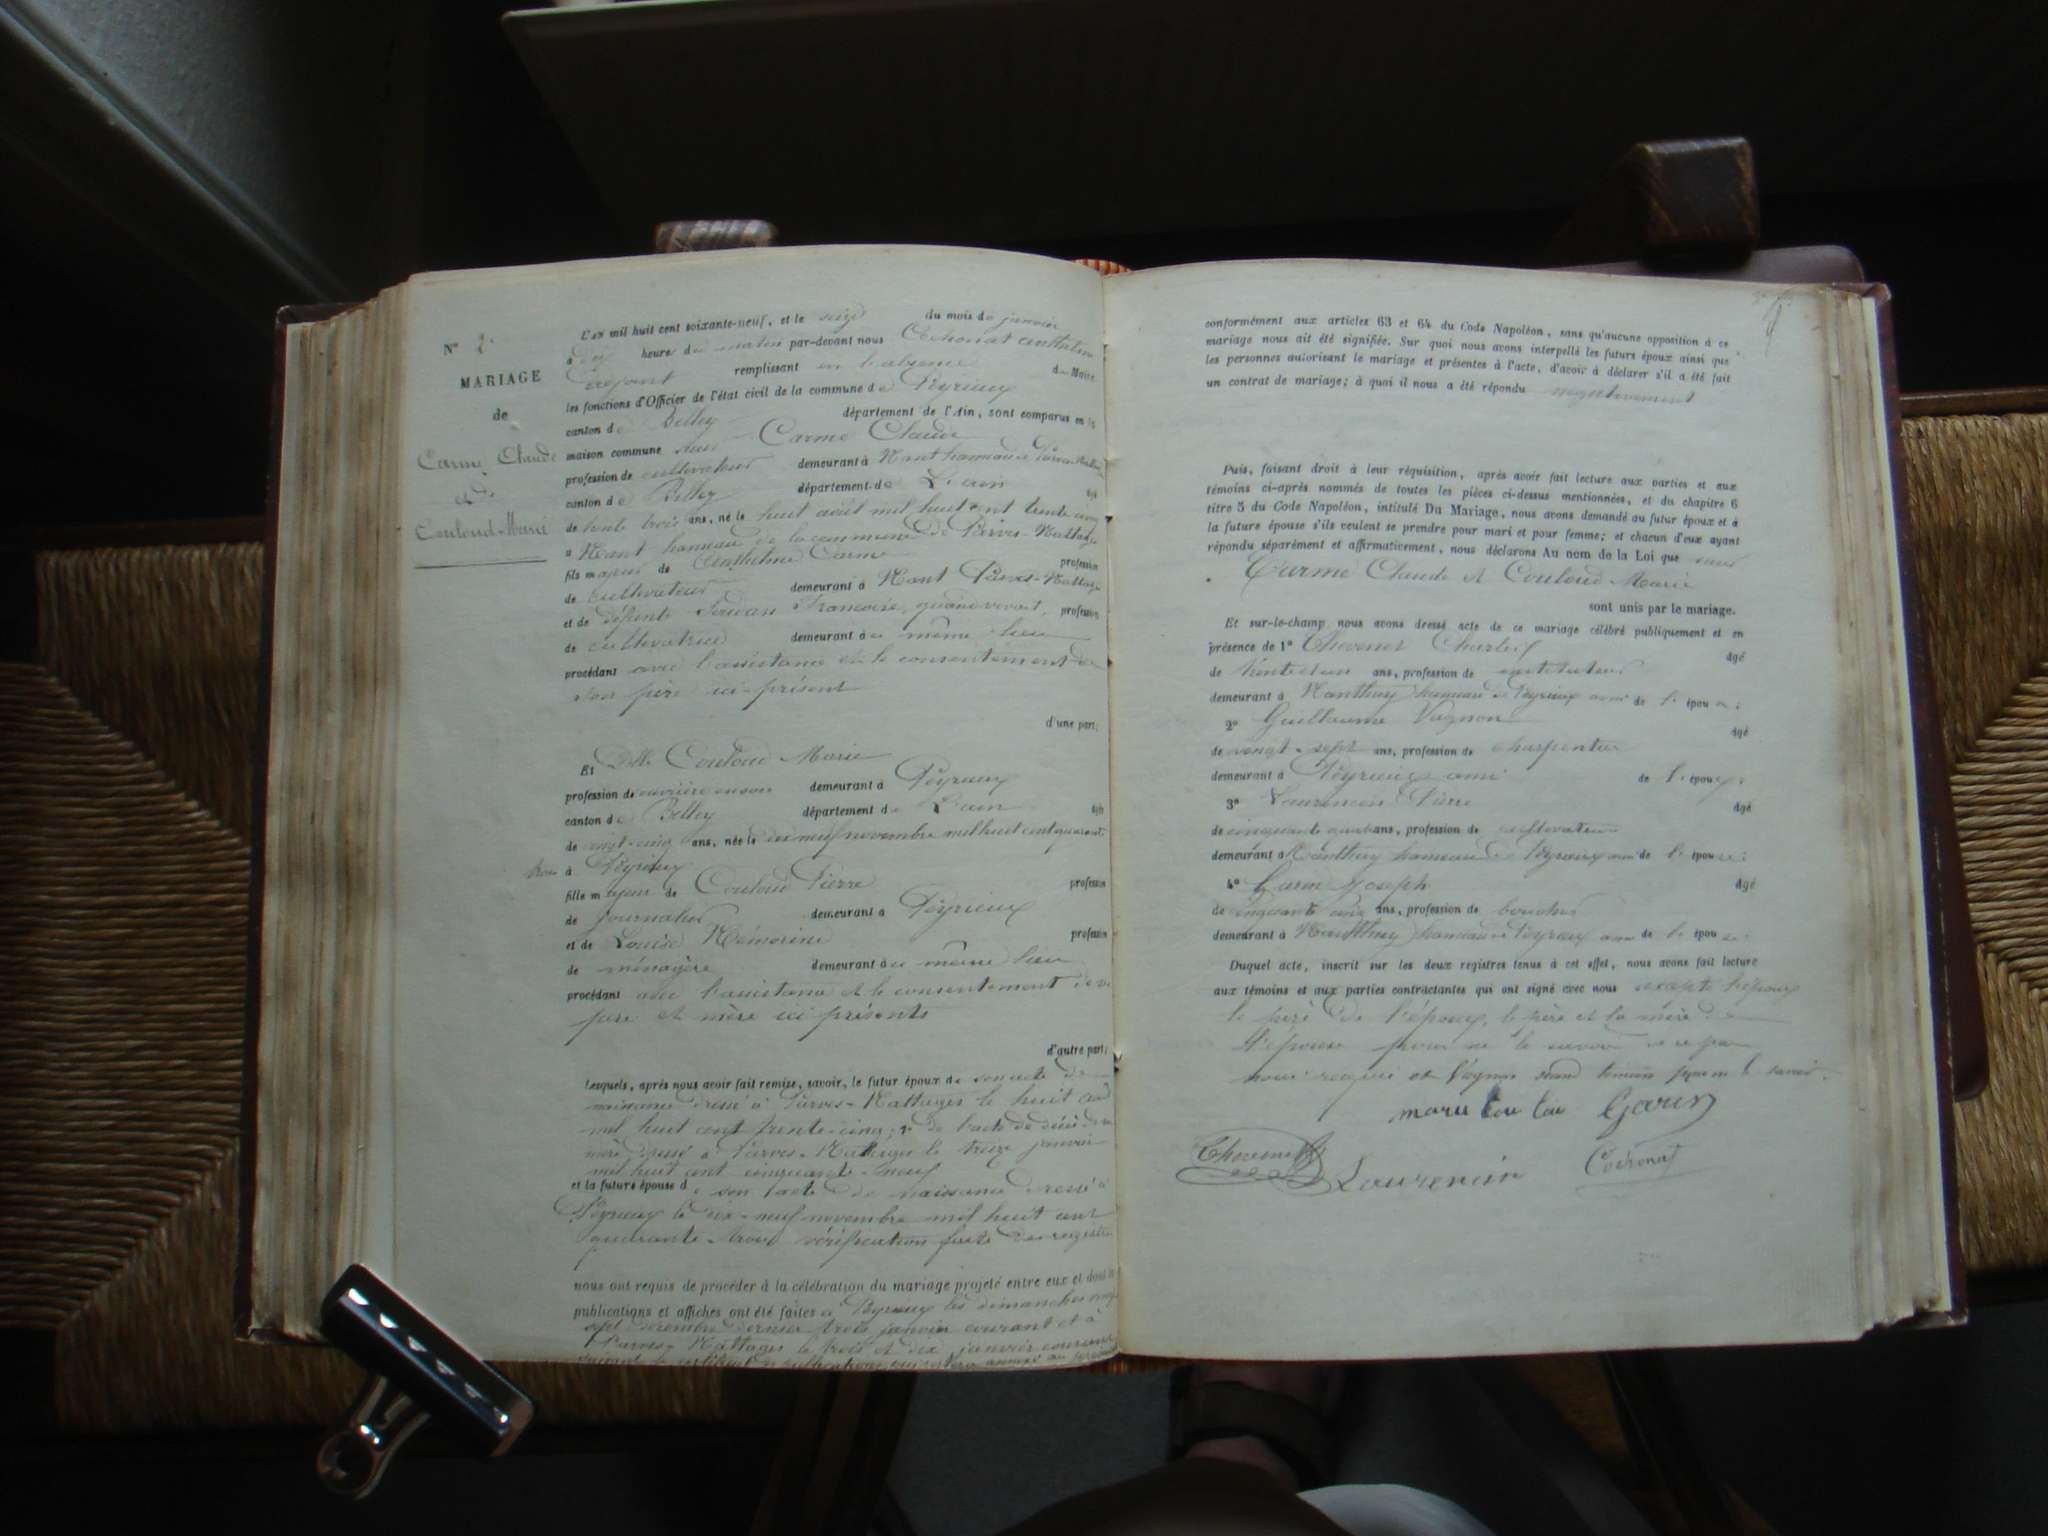 N° 2
MARIAGE
de
Carme Claude
et de
Couloud Marie
L'an mil huit cent soixante-neuf, et le seize du mois de janvier
à dix heures du matin par-devant nous Anthelme
adjoint remplissant en l'absence du Maire
les fonctions d'Officier de l'état civil de la commune de Peyrieux
canton de Belley département de l'Ain, sont comparus en la
maison commune Carme Claude
profession de cultivateur demeurant à Nant hameau de
canton de Belley département de L'ain âgé
de trente trois ans, né le huit août mil huit cent trente cinq
à Nant hameau de la commune de Parves-Nattages
fils majeur de Anthelme Carme profession
de cultivateur demeurant à Nant Parves-Nattages
et de défunte Françoise, quand vivait, profession
de cultivatrice demeurant à ce même lieu
procédant avec l'assistance et le consentement de
son père ici présent
d'une part;
Et Dlle Couloud Marie
profession de ouvrière en soie demeurant à Peyrieux
canton de Belley département de L'ain âgée
de vingt-cinq ans, née le dix neuf novembre mil huit cent quarante
trois à Peyrieux
fille majeure de Couloud Pierre profession
de journalier demeurant à Peyrieux
et de Louise profession
de ménagère demeurant à ce même lieu
procédant avec l'assistance et le consentement de ses
père et mère ici présents
d'autre part;
lesquels, après nous avoir fait remise, savoir, le futur époux de son acte de
naissance dressé à Parves-Nattages le huit août
mil huit cent trente-cinq; 2° de l'acte de décès de sa
mère dressé à Parves-Nattages le treize janvier
mil huit cent cinquante-neuf
et la future épouse de son acte de naissance dressé à
Peyrieux le dix-neuf novembre mil huit cent
quarante-trois vérification faite des registres
nous ont requis de procéder à la célébration du mariage projeté entre eux et dont les
publications et affiches ont été faites à Peyrieux les dimanches vingt
sept décembre dernier trois janvier courant et à
Parves-Nattages le trois et dix janvier courant
conformément aux articles 63 et 64 du Code Napoléon, sans qu'aucune opposition à ce
mariage nous ait été signifiée. Sur quoi nous avons interpellé les futurs époux ainsi que
les personnes autorisant le mariage et présentes à l'acte, d'avoir à déclarer s'il a été fait
un contrat de mariage; à quoi il nous a été répondu négativement
Puis, faisant droit à leur réquisition, après avoir fait lecture aux parties et aux
témoins ci-après nommés de toutes les pièces ci-dessus mentionnées, et du chapitre 6
titre 5 du Code Napoléon, intitulé Du Mariage, nous avons demandé au futur époux et à
la future épouse s'ils veulent se prendre pour mari et pour femme; et chacun d'eux ayant
répondu séparément et affirmativement, nous déclarons Au nom de la Loi que
Carme Claude et Couloud Marie
sont unis par le mariage.
Et sur-le-champ nous avons dressé acte de ce mariage célébré publiquement et en
présence de 1° Thevenet Charles âgé
de ans, profession de instituteur
demeurant à Nanthuy hameau de Peyrieux ami de l'épouse;
2° Guillaume Vagnon âgé
de vingt-sept ans, profession de charpentier
demeurant à Peyrieux ami de l'époux;
3° Laurencin Pierre âgé
de cinquante quatre ans, profession de cultivateur
demeurant à Nanthuy hameau de Peyrieux ami de l'épouse;
4° Garin Joseph âgé
de cinquante cinq ans, profession de boucher
demeurant à Nanthuy hameau de Peyrieux ami de l'épouse.
Duquel acte, inscrit sur les deux registres tenus à cet effet, nous avons fait lecture
aux témoins et aux parties contractantes qui ont signé avec nous excepté l'époux
le père de l'époux, le père et la mère de
l'épouse pour ne le savoir de ce par
nous requis et Vagnon témoin pour ne le savoir.
marie Cou lou Garin
Thevenet Laurencin